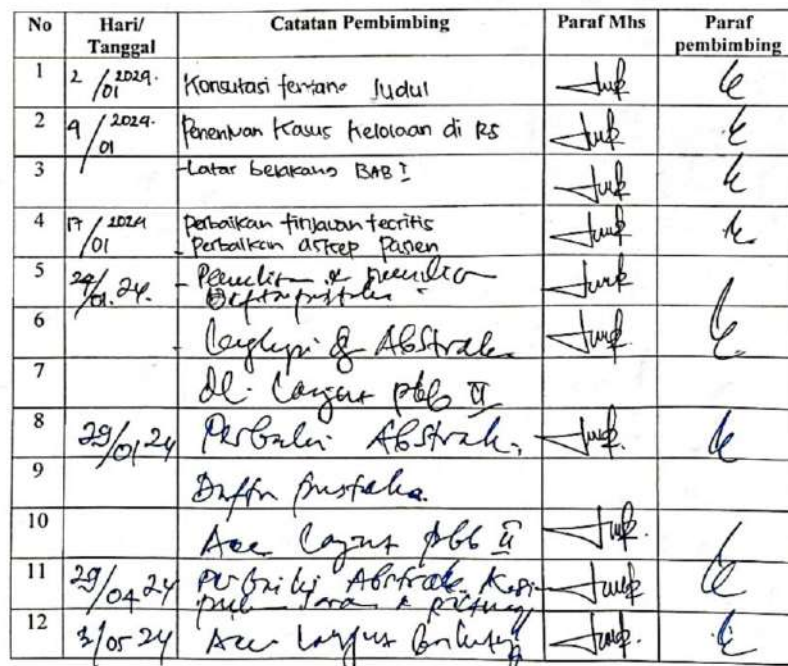 No Hari/ Tanggal Catatan Pembimbing Paraf Mhs Paraf pembimbing
1 2/01 2024. Konsultasi tentang Judul
2 9/01 2024. Penentuan Kasus Kelolaan di RS
3 -Latar belakang BAB I
4 17/01 2024 Perbaikan tinjauan teoritis
- Perbaikan askep Pasien
5 24/01.24. - Penulisan
Daftar pustaka
6 - Lengkapi & Abstrak.
7 dl. Lanjut pbb II
8 29/01 24 Perbaiki Abstrak.
9 Daftar pustaka.
10 Acc Lanjut pbb II
11 29/04 24 Perbaiki Abstrak, Kesim
pulan saran &
12 3/05 24 Acc Lanjut